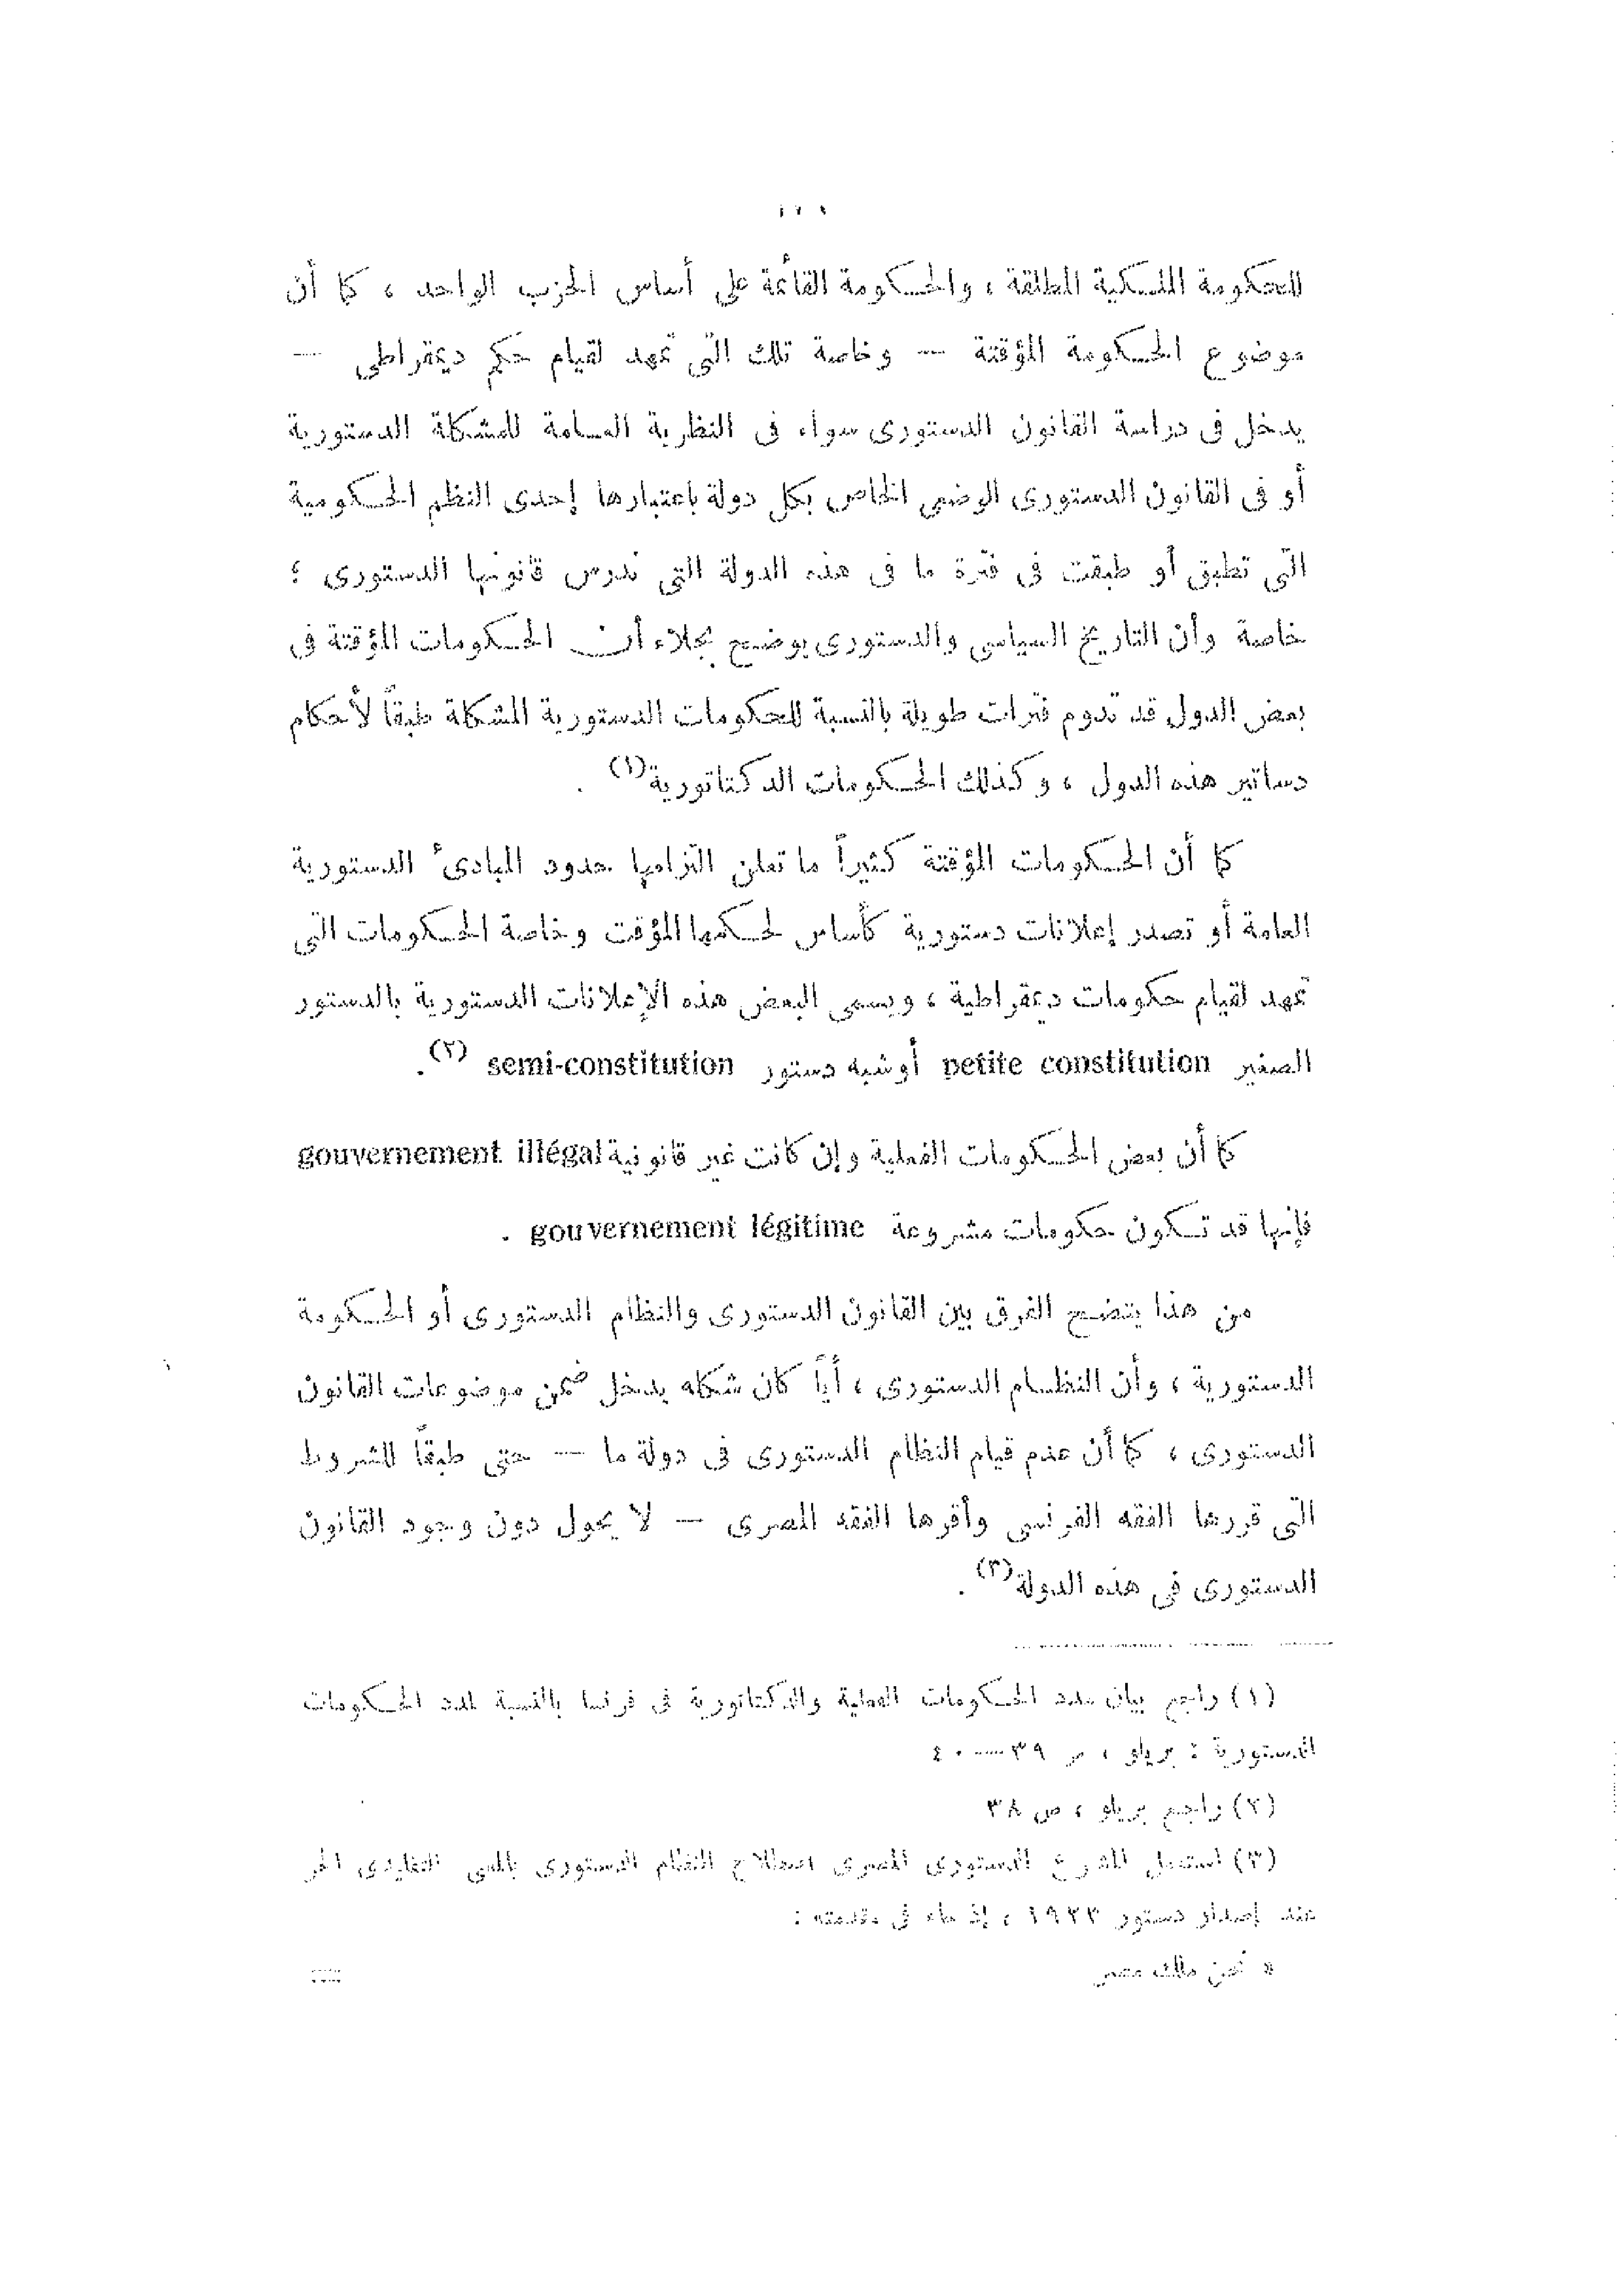 للحكومة الملكية المطلقة ، والحكومة القائمة على أساس الحزب الواحد ، كما أن
موضوع الحكومة المؤقتة — وخاصة تلك التى تمهد لقيام حكم ديمقراطى —
يدخل فى دراسة القانون الدستورى سواء فى النظرية العامة للمشكلة الدستورية
أو فى القانون الدستورى الوضعى الخاص بكل دولة باعتبارها إحدى النظم الحكومية
التى تطبق أو طبقت فى فترة ما فى هذه الدولة التى ندرس قانونها الدستورى ؛
خاصة وأن التاريخ السياسى والدستورى يوضح بجلاء أن الحكومات المؤقتة فى
بعض الدول قد تدوم فترات طويلة بالنسبة للحكومات الدستورية المشكلة طبقاً لأحكام
دساتير هذه الدول ، وكذلك الحكومات الدكتاتورية (١) .
كما أن الحكومات المؤقتة كثيراً ما تعلن التزامها حدود المبادىء الدستورية
العامة أو تصدر إعلانات دستورية كأساس لحكمها المؤقت وخاصة الحكومات التى
تمهد لقيام حكومات ديمقراطية ، ويسمى البعض هذه الإعلانات الدستورية بالدستور
الصغير petite constitution أو شبه دستور semi-constitution (٢) .
كما أن بعض الحكومات الفعلية وإن كانت غير قانونية gouvernement illégal
فإنها قد تكون حكومات مشروعة gouvernement légitime .
من هذا يتضح الفرق بين القانون الدستورى والنظام الدستورى أو الحكومة
الدستورية ، وأن النظام الدستورى ، أياً كان شكله يدخل ضمن موضوعات القانون
الدستورى ، كما أن عدم قيام النظام الدستورى فى دولة ما — حتى طبقاً للشروط
التى قررها الفقه الفرنسى وأقرها الفقه المصرى — لا يحول دون وجود القانون
الدستورى فى هذه الدولة (٣) .
(١) راجع بيان عدد الحكومات الفعلية والدكتاتورية فى فرنسا بالنسبة لعدد الحكومات
الدستورية : بريلو ، ص ٣٩ — ٤٠
(٢) راجع بريلو ، ص ٣٨
(٣) استعمل المشرع الدستورى المصرى اصطلاح النظام الدستورى بالمعنى التقليدى الحر
عند إصدار دستور ١٩٢٣ ، إذ جاء فى مقدمته :
« نحن ملك مصر
=